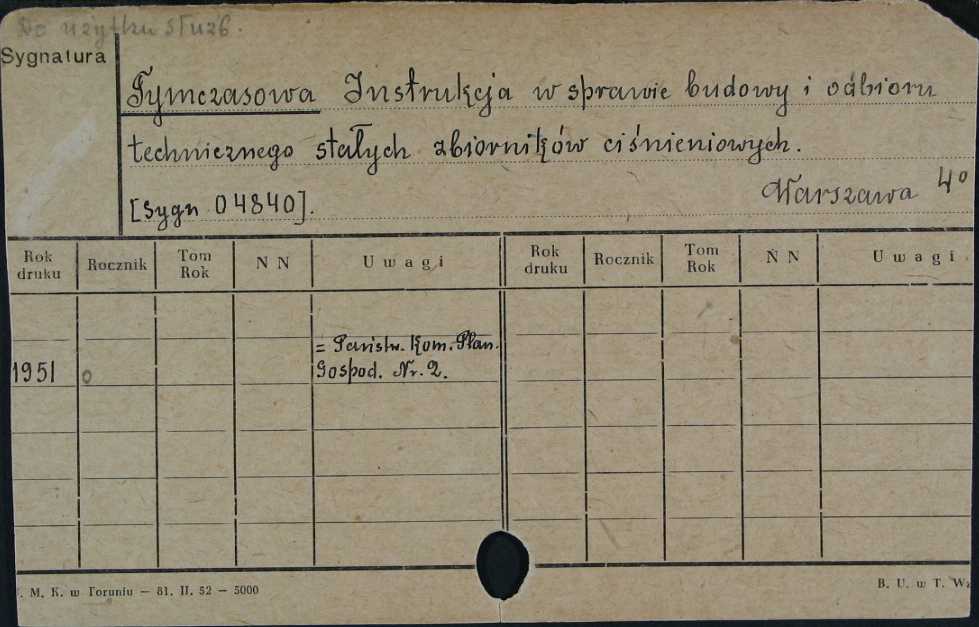 Do użytku służb.
Sygnatura
Tymczasowa Instrukcja w sprawie budowy i odbioru
technicznego stałych zbiorników ciśnieniowych.
[Sygn 04840]. Warszawa 4°
Rok druku Rocznik Tom Rok N N Uwagi Rok druku Rocznik Tom Rok N N Uwagi
= Państw. Kom. Plan.
1951 0 Gospod. Nr. 2.
M. K. w Toruniu — 81. II. 52 — 5000 B. U. w T.